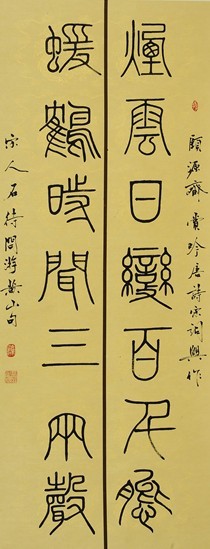 頤源齋賞吟唐詩宋詞興作
煙雲日變百千態
蝯鶴時聞三兩聲
宋人石待問游黃山句